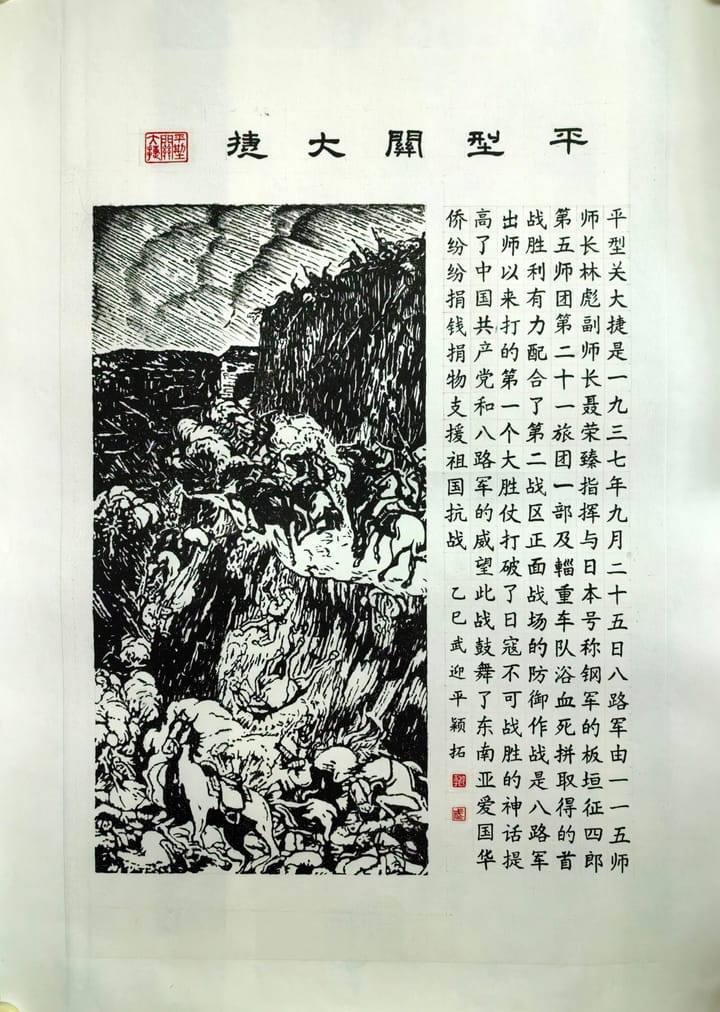 平型關大捷
平型關大捷
平型关大捷是一九三七年九月二十五日八路军由一一五师
师长林彪副师长聂荣臻指挥与日本号称钢军的板垣征四郎
第五师团第二十一旅团一部及輜重车队浴血死拼取得的首
战胜利有力配合了第二战区正面战场的防御作战是八路军
出师以来打的第一个大胜仗打破了日寇不可战胜的神话提
高了中国共产党和八路军的威望此战鼓舞了东南亚爱国华
侨纷纷捐钱捐物支援祖国抗战 乙巳武迎平颖拓